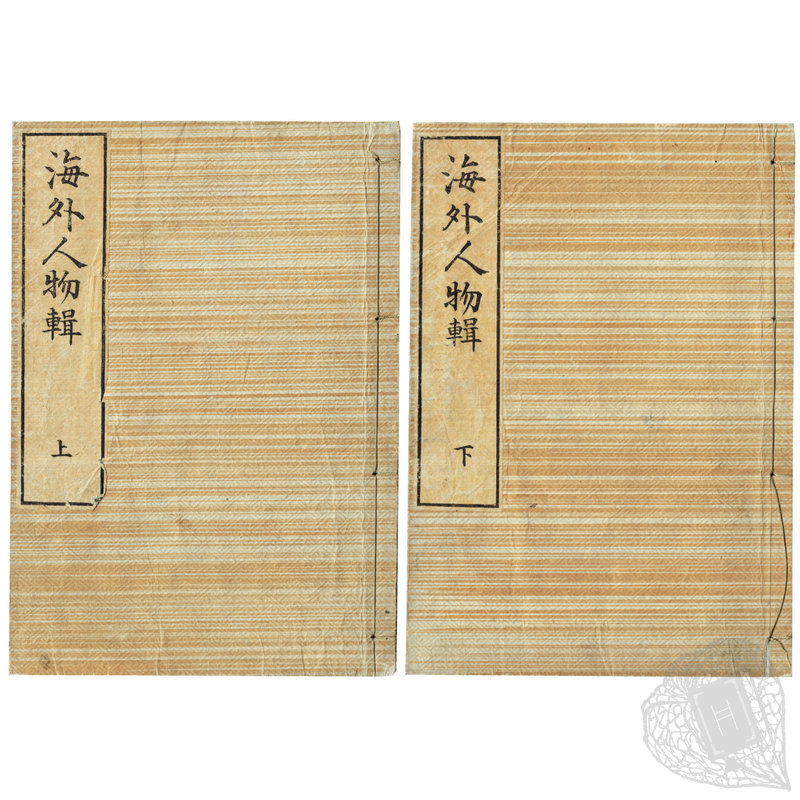 海外人物輯
上
海外人物輯
下
H